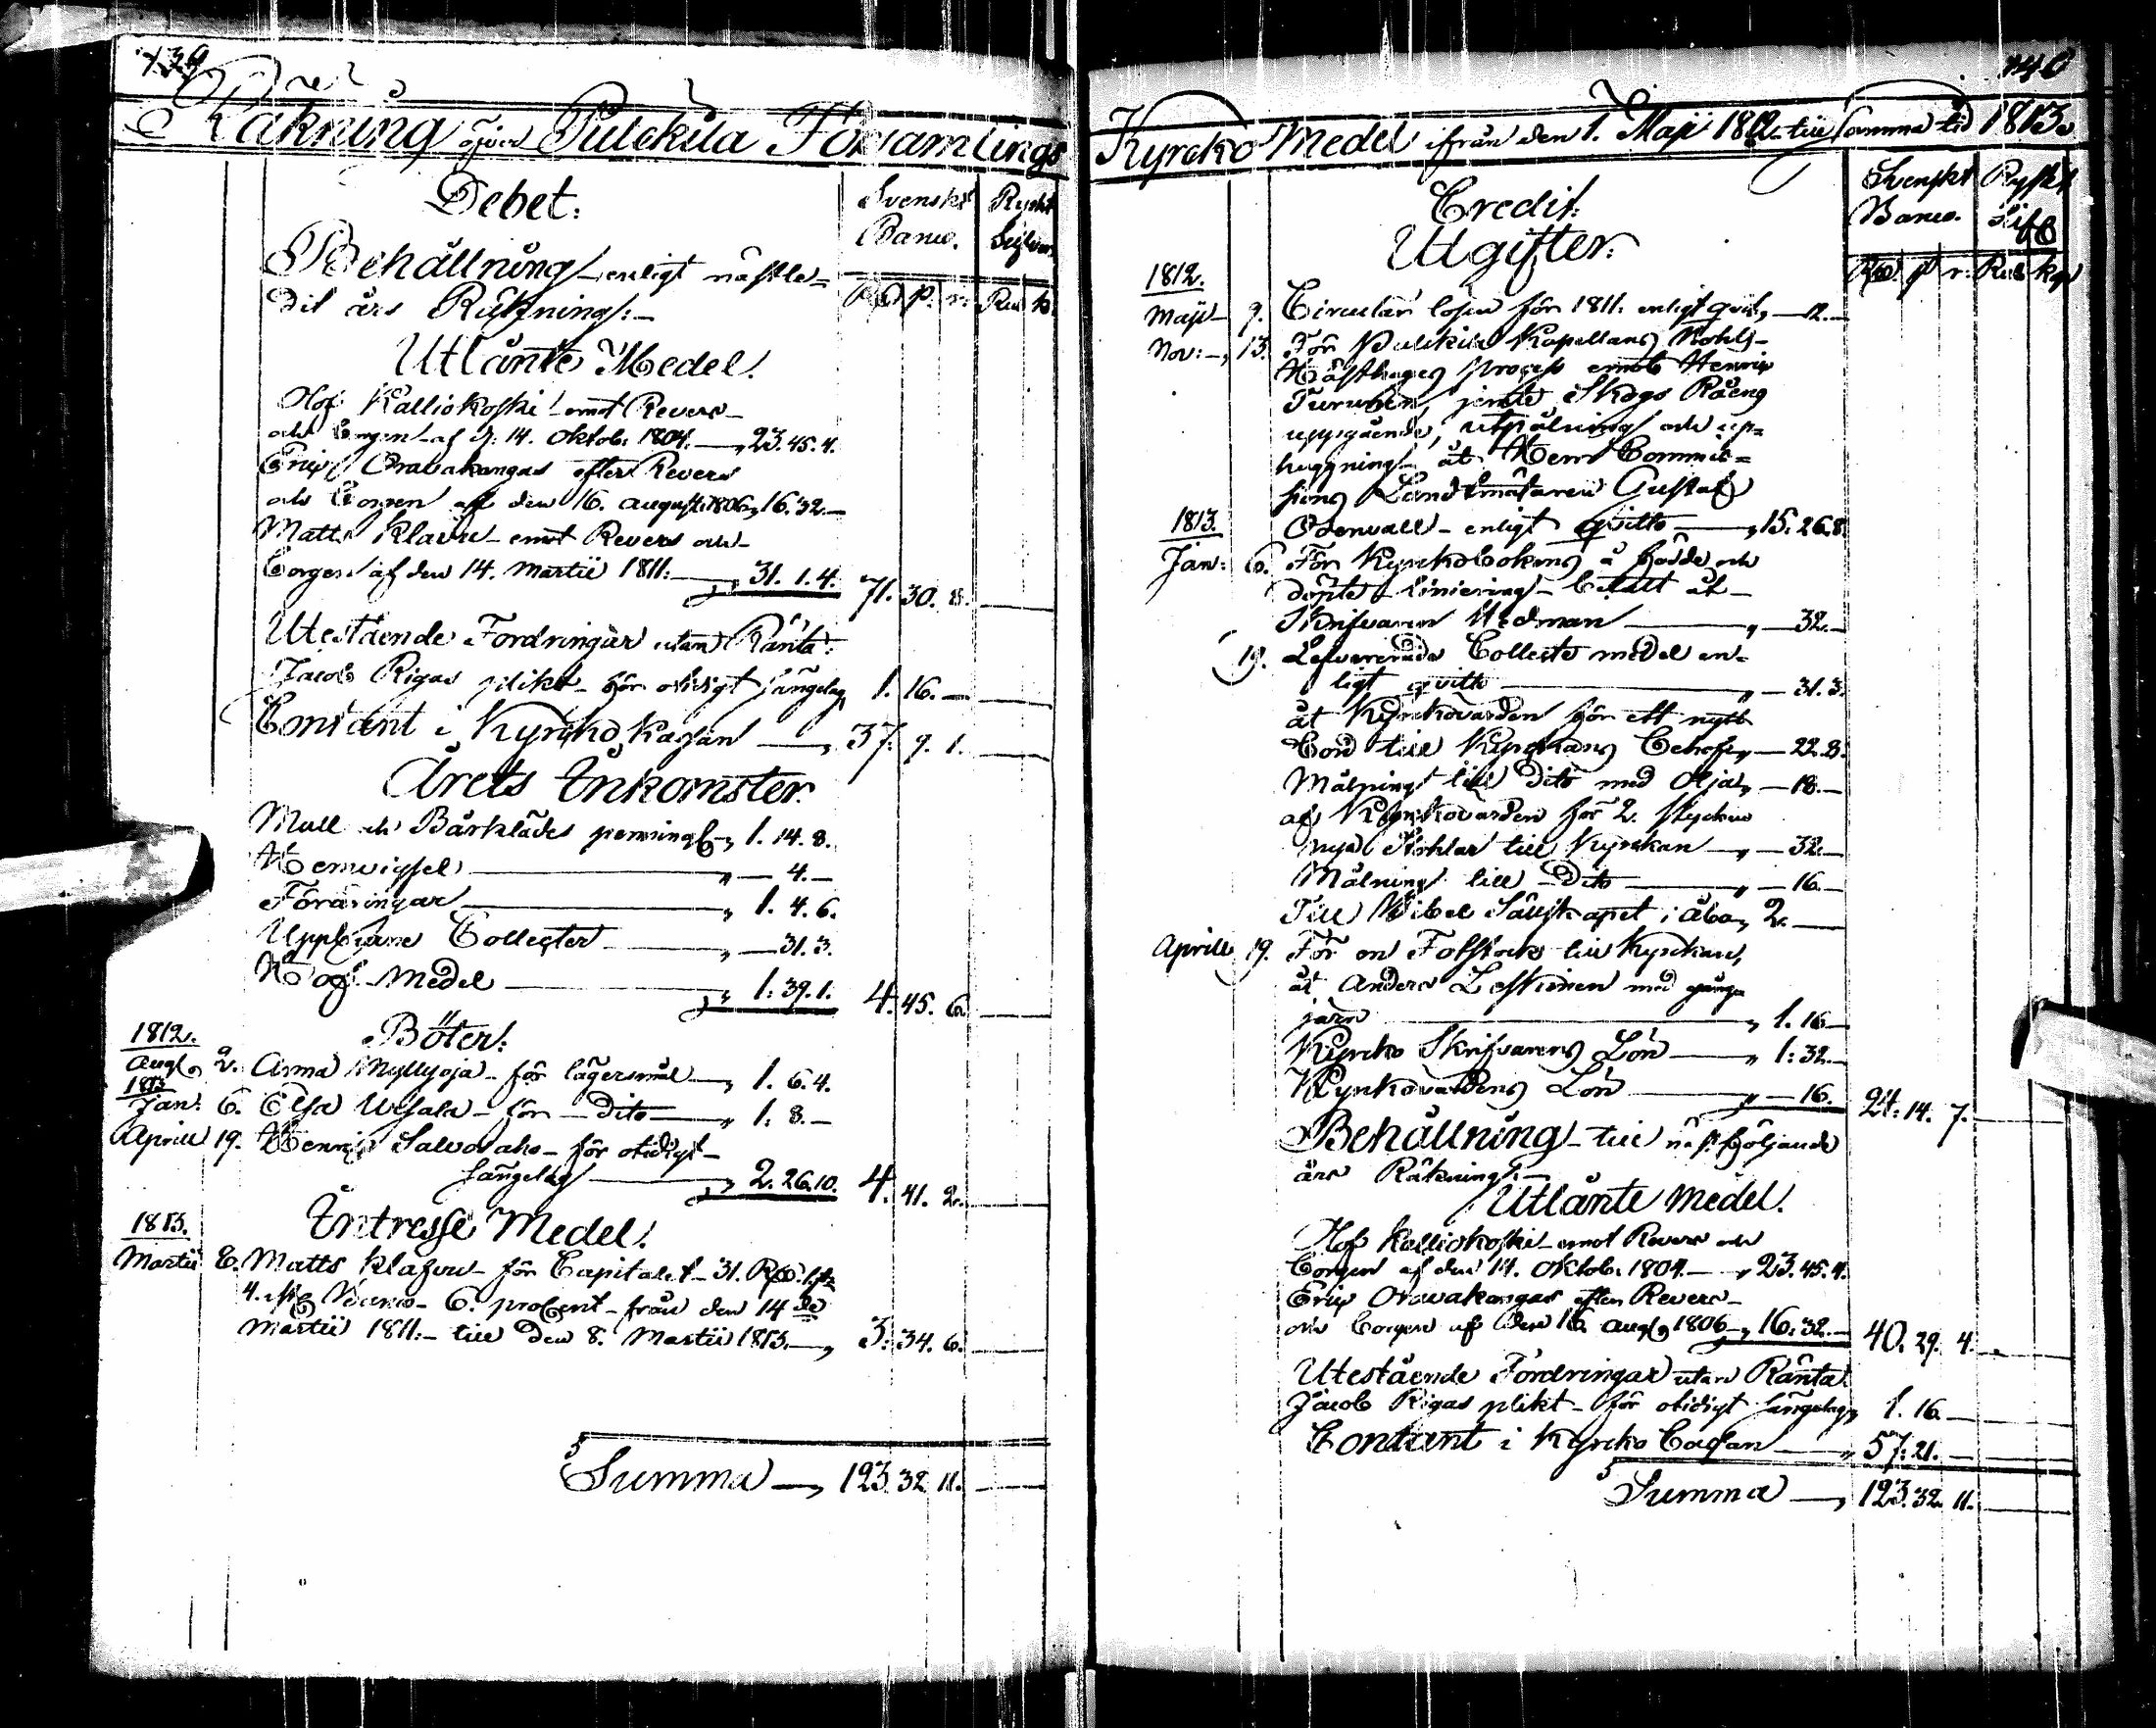 139
Räkning öfver Pulckila Församlings
Debet.
Svenskt Ryskt
Banco. Silfver
Behållning enligt nästle=
RD. s. r. Rub k.
dit års Räkning:
Utlånte Medel.
Olof Kalliokoski emot Revers
och Borgen af d. 14. Oktob. 1804. — 23. 45. 4.
Eric Oravakangas efter Revers
och Borgen af den 16. August. 1806. 16. 32. —
Matts Klavu emot Revers och
Borgen af den 14. Martii 1811: — 31. 1. 4. 71. 30. 8.
Utestående Fordringar utan Ränta:
Jacob Rigas plikt för otidigt sängelag 1. 16. —
Contant i Kyrcko Kassan — 37. 9. 1.
Årets Inkomster.
Mull och Bårkläds penning 1. 14. 8.
Hemvigsel — 4. —
Föräringar 1. 4. 6.
Uppburne Collecter — 31. 3.
Håf Medel 1. 39. 1. 4. 45. 6.
1812. Böter.
Aug. 2. Anna Myllyoja för lägersmål 1. 6. 4.
1813
Jan: 6. Elsa Uhsala för Dito 1. 8. —
Aprill 19. Henric Salvoraho för otidigt
sängelag 2. 26. 10. 4. 41. 2.
1813. Intresse Medel.
Martii 8. Matts Klavu för Capitalet 31. RD.
4. Banco 6. procent från den 14de
Martii 1811: till den 8. Martii 1813. 3. 34. 6.
Summa — 123. 32. 11.
140
Kyrcko Medel ifrån den 1. Maji 1812. till samma tid 1813.
Credit. Svenskt Ryskt
Utgifter. Banco. Silf
1812. RD. s. r. Rub kop
Maji 9. Circulair lösen för 1811: enligt qvit. — 12. —
Nov: 13. För Pulckila Kapellans Bohls
Hästhages process emot Henric
Turunen, jemte Skogs Råens
uppgående, utpålning och up=
huggning åt Herr Commis=
sions Landtmätaren Gustaf
1813. Odenvall enligt qvitto — 15. 26. 8.
Jan: 6. För Kyrckobokens å födde och
döpte liniering betalt åt
Skrifvaren Hedman — 32. —
19. Lefvererade Collecte medel en=
ligt qvitto — 31. 3.
åt Kyrckovärden för ett nytt
Bord till Kyrckans behof — 22. 8.
Målning till Dito med Olja — 18. —
af Kyrckovärden för 2. stycken
nya Stohlar till Kyrckan — 32. —
Målning till Dito — 16. —
Till Bibel Sällskapet i Åbo, 2. —
Aprill 19. För en Fotstock till Kyrckan,
åt Anders Leskinen med gångjärn
1. 16 —
Kyrcko Skrifvarens Lön — 1: 32. —
Kyrckovärdens Lön — 16. 24. 14. 7.
Behållning till näst följande
års Räkning:
Utlånte Medel.
Olof Kalliokoski emot Revers och
Borgen af den 14. Oktob. 1804. — 23. 45. 4.
Eric Oravakangas efter Revers
och Borgen af den 16. Aug. 1806 — 16: 32. — 40. 29. 4.
Utestående Fordringar utan Ränta
Jacob Rigas plikt för otidigt sängelag 1. 16. —
Contant i Kyrcko Cassan — 57: 21. —
Summa — 123. 32. 11.